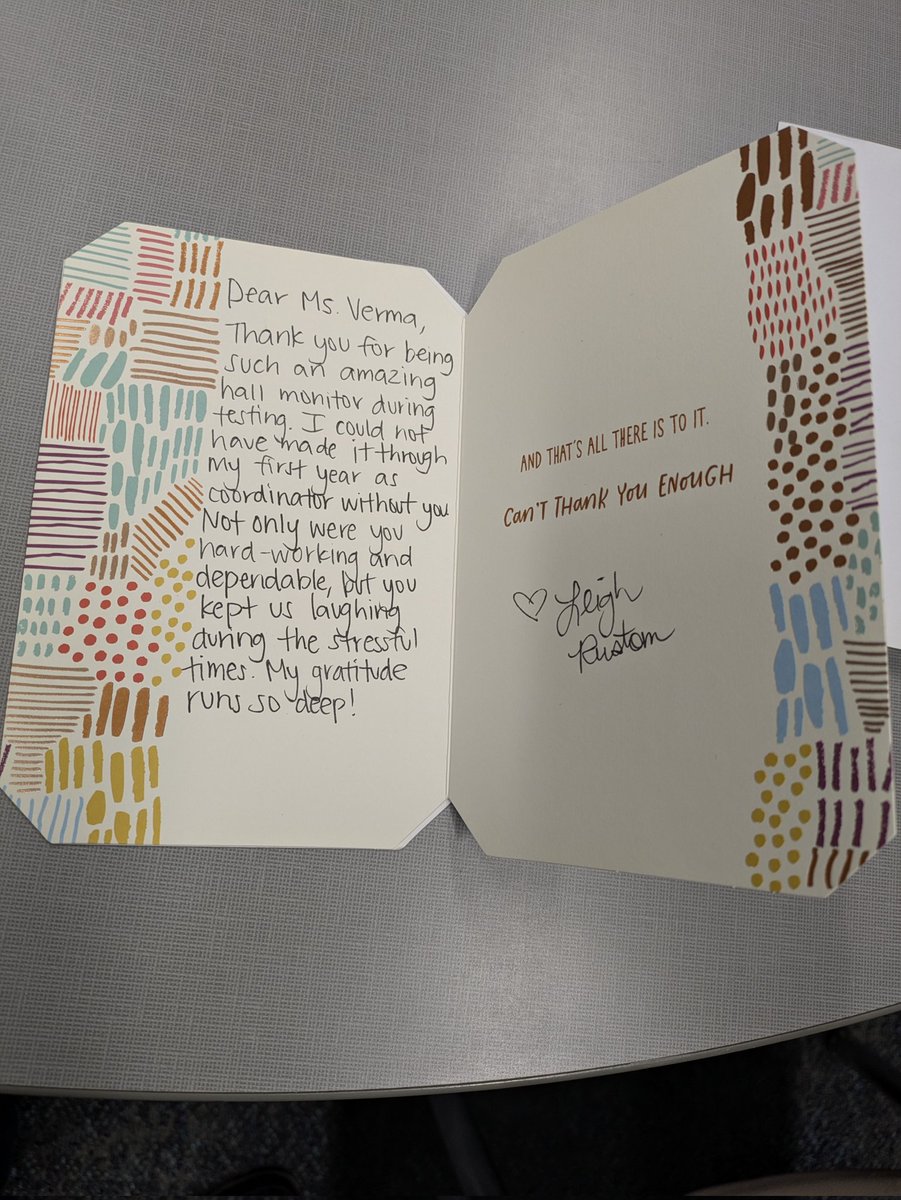 Dear Ms. Verma,
Thank you for being
such an amazing
hall monitor during
testing. I could not
have made it through
my first year as
coordinator without you
Not only were you
hard-working and
dependable, but you
kept us laughing
during the stressful
times. My gratitude
runs so deep!
AND THAT'S ALL THERE IS TO IT.
CAN'T THANK YOU ENOUGH
♡ Leigh
Rustom